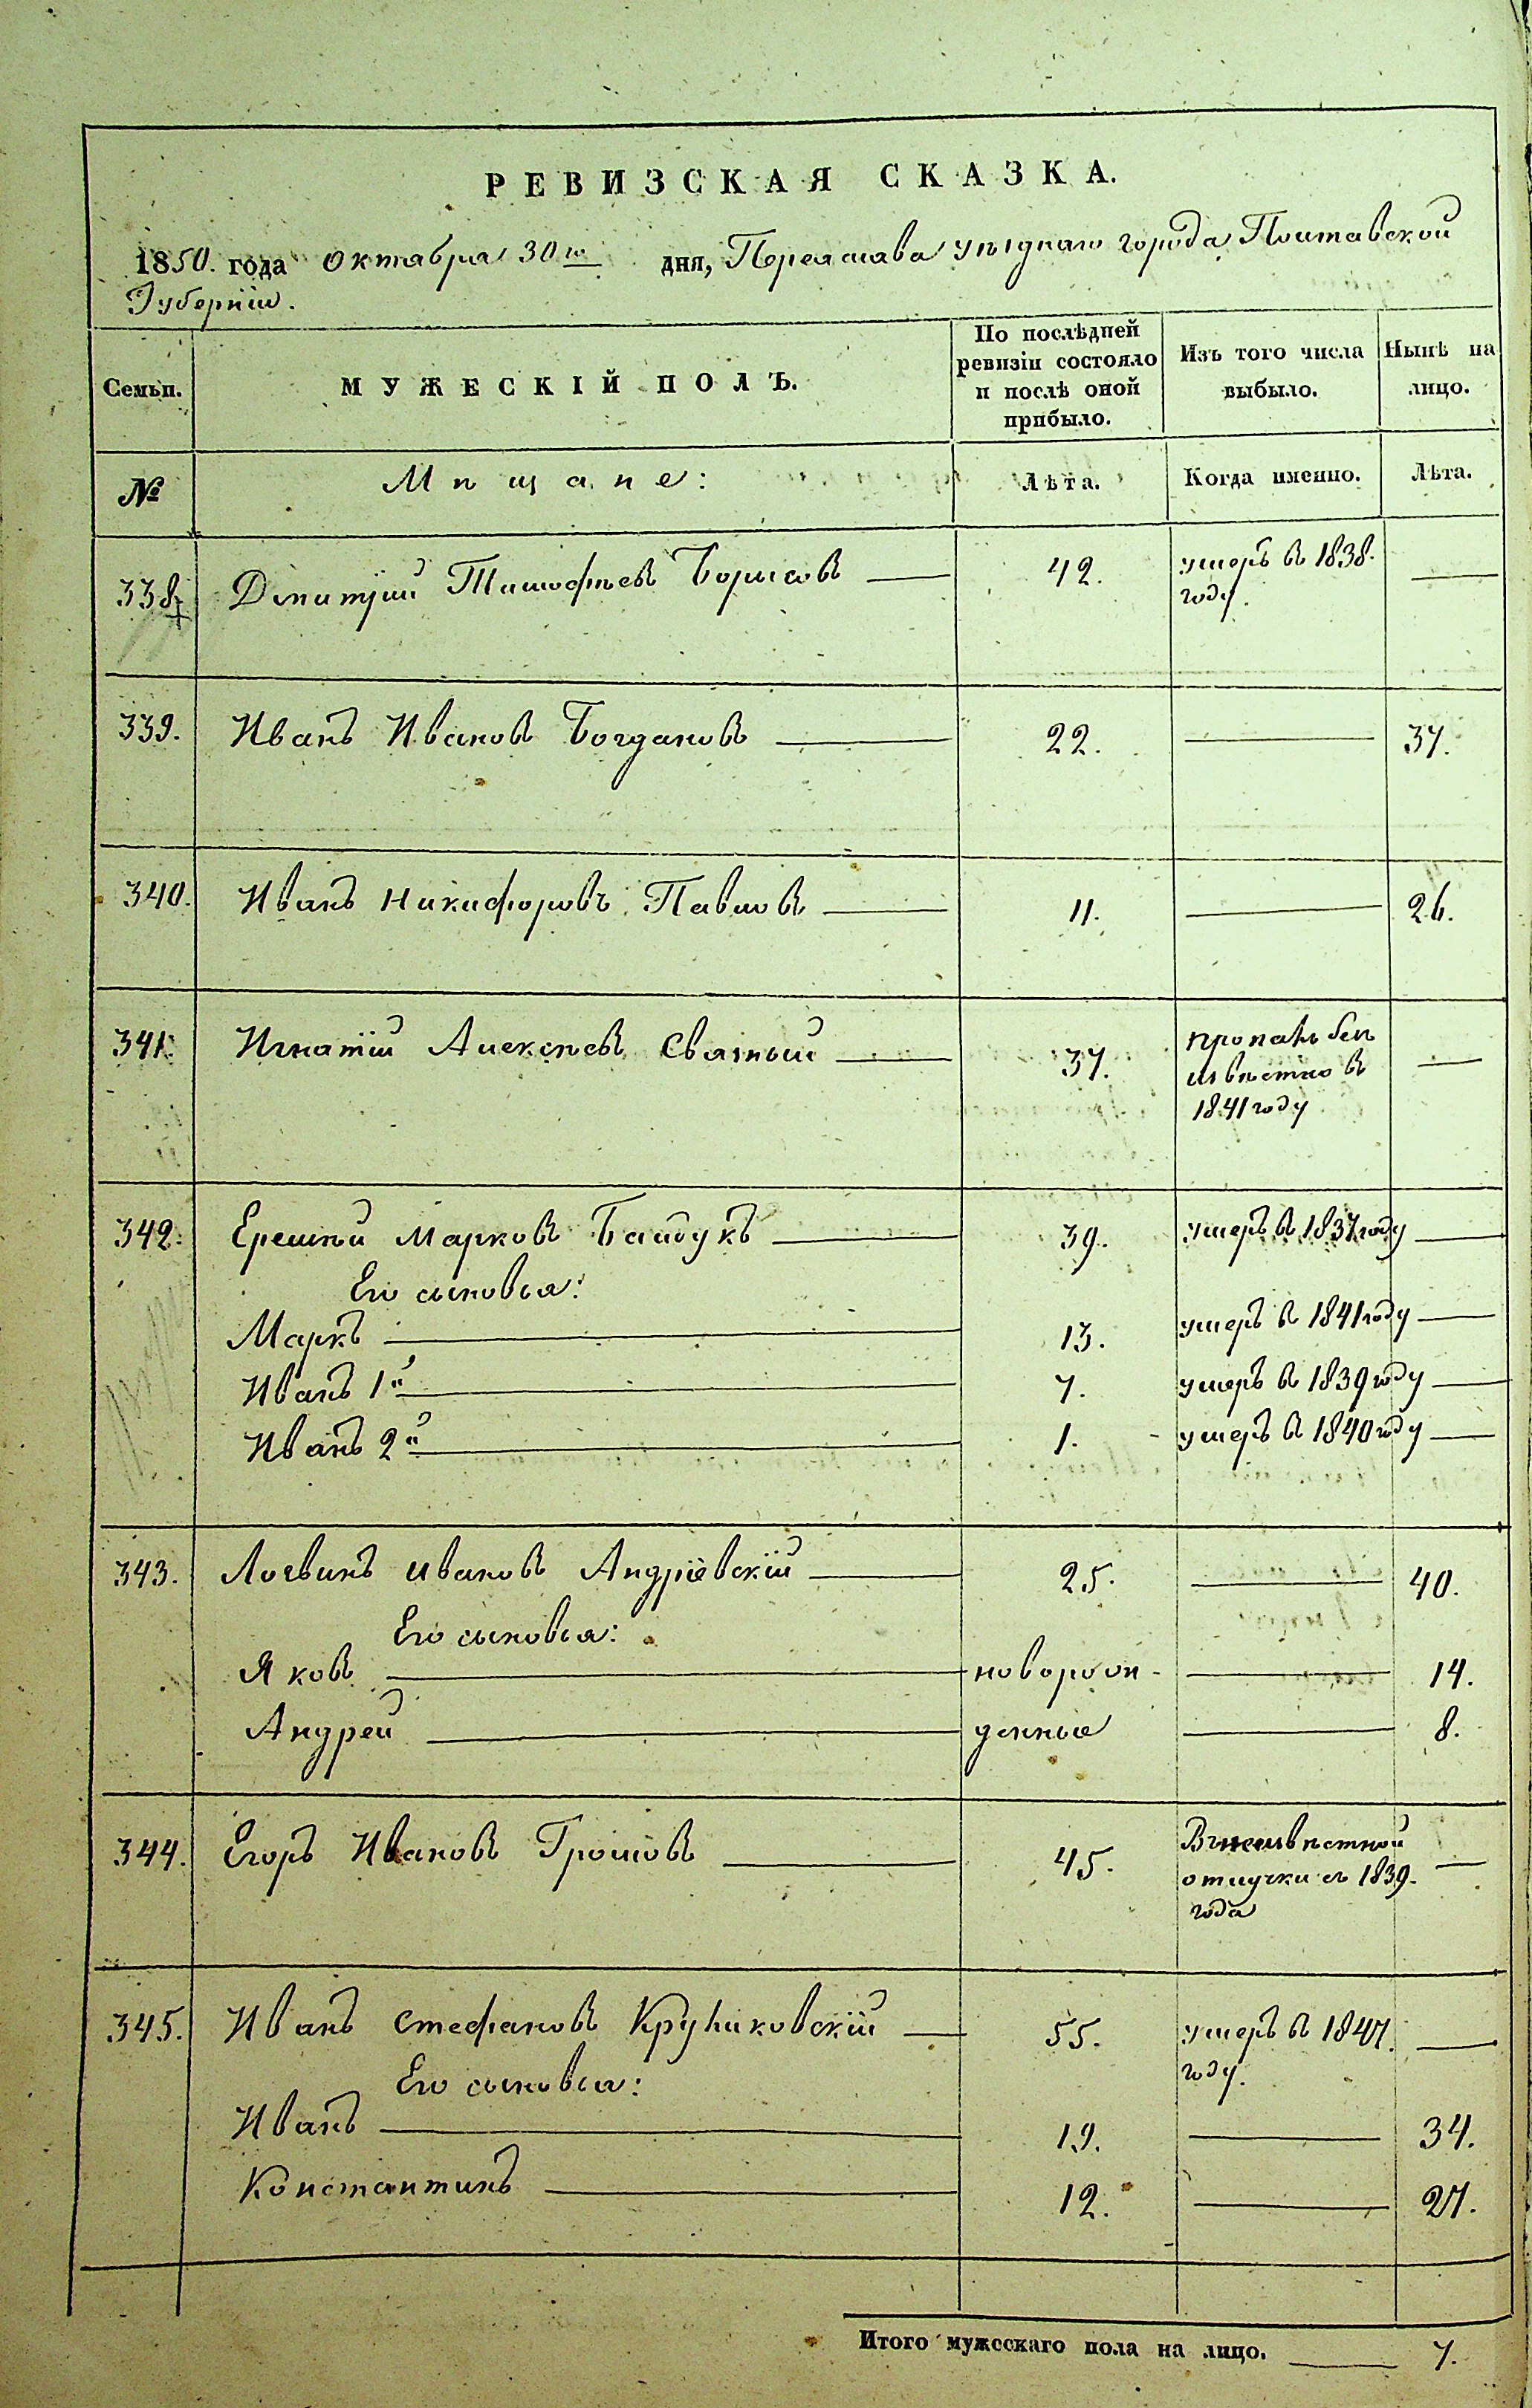 РЕВИЗСКАЯ СКАЗКА.
1850. года Октября 30го дня, Переяслава уѣзднаго города Полтавской
Губерніи.
Семьи. МУЖЕСКІЙ ПОЛЪ. По послѣдней ревизіи состояло и послѣ оной прибыло. Изъ того числа выбыло. Нынѣ на лицо.
№ Мѣщане: Лѣта. Когда именно. Лѣта.
338. Дмитрій Тимофѣевъ Борисовъ — 42. умеръ въ 1838. —
году.
339. Иванъ Ивановъ Богдановъ — 22. — 37.
340. Иванъ Никифоровъ Павловъ — 11. — 26.
341. Игнатій Алексѣевъ Святный — 37. пропалъ безъ —
извѣстно въ
1841 году
342. Еремѣй Марковъ Байдукъ — 39. умеръ въ 1837 году —
Его сыновья:
Маркъ — 13. умеръ въ 1841 году —
Иванъ 1й — 7. умеръ въ 1839 году —
Иванъ 2й — 1. умеръ въ 1840 году —
343. Логвинъ Ивановъ Андріевскій — 25. — 40.
Его сыновья:
Яковъ — новорож- — 14.
Андрей — денные — 8.
344. Егоръ Ивановъ Громовъ — 45. Въ неизвѣстной —
отлучки съ 1839.
года
345. Иванъ Стефановъ Круликовскій — 55. умеръ въ 1847. —
году.
Его сыновья:
Иванъ — 19. — 34.
Константинъ — 12. — 27.
Итого мужескаго пола на лицо. — 7.